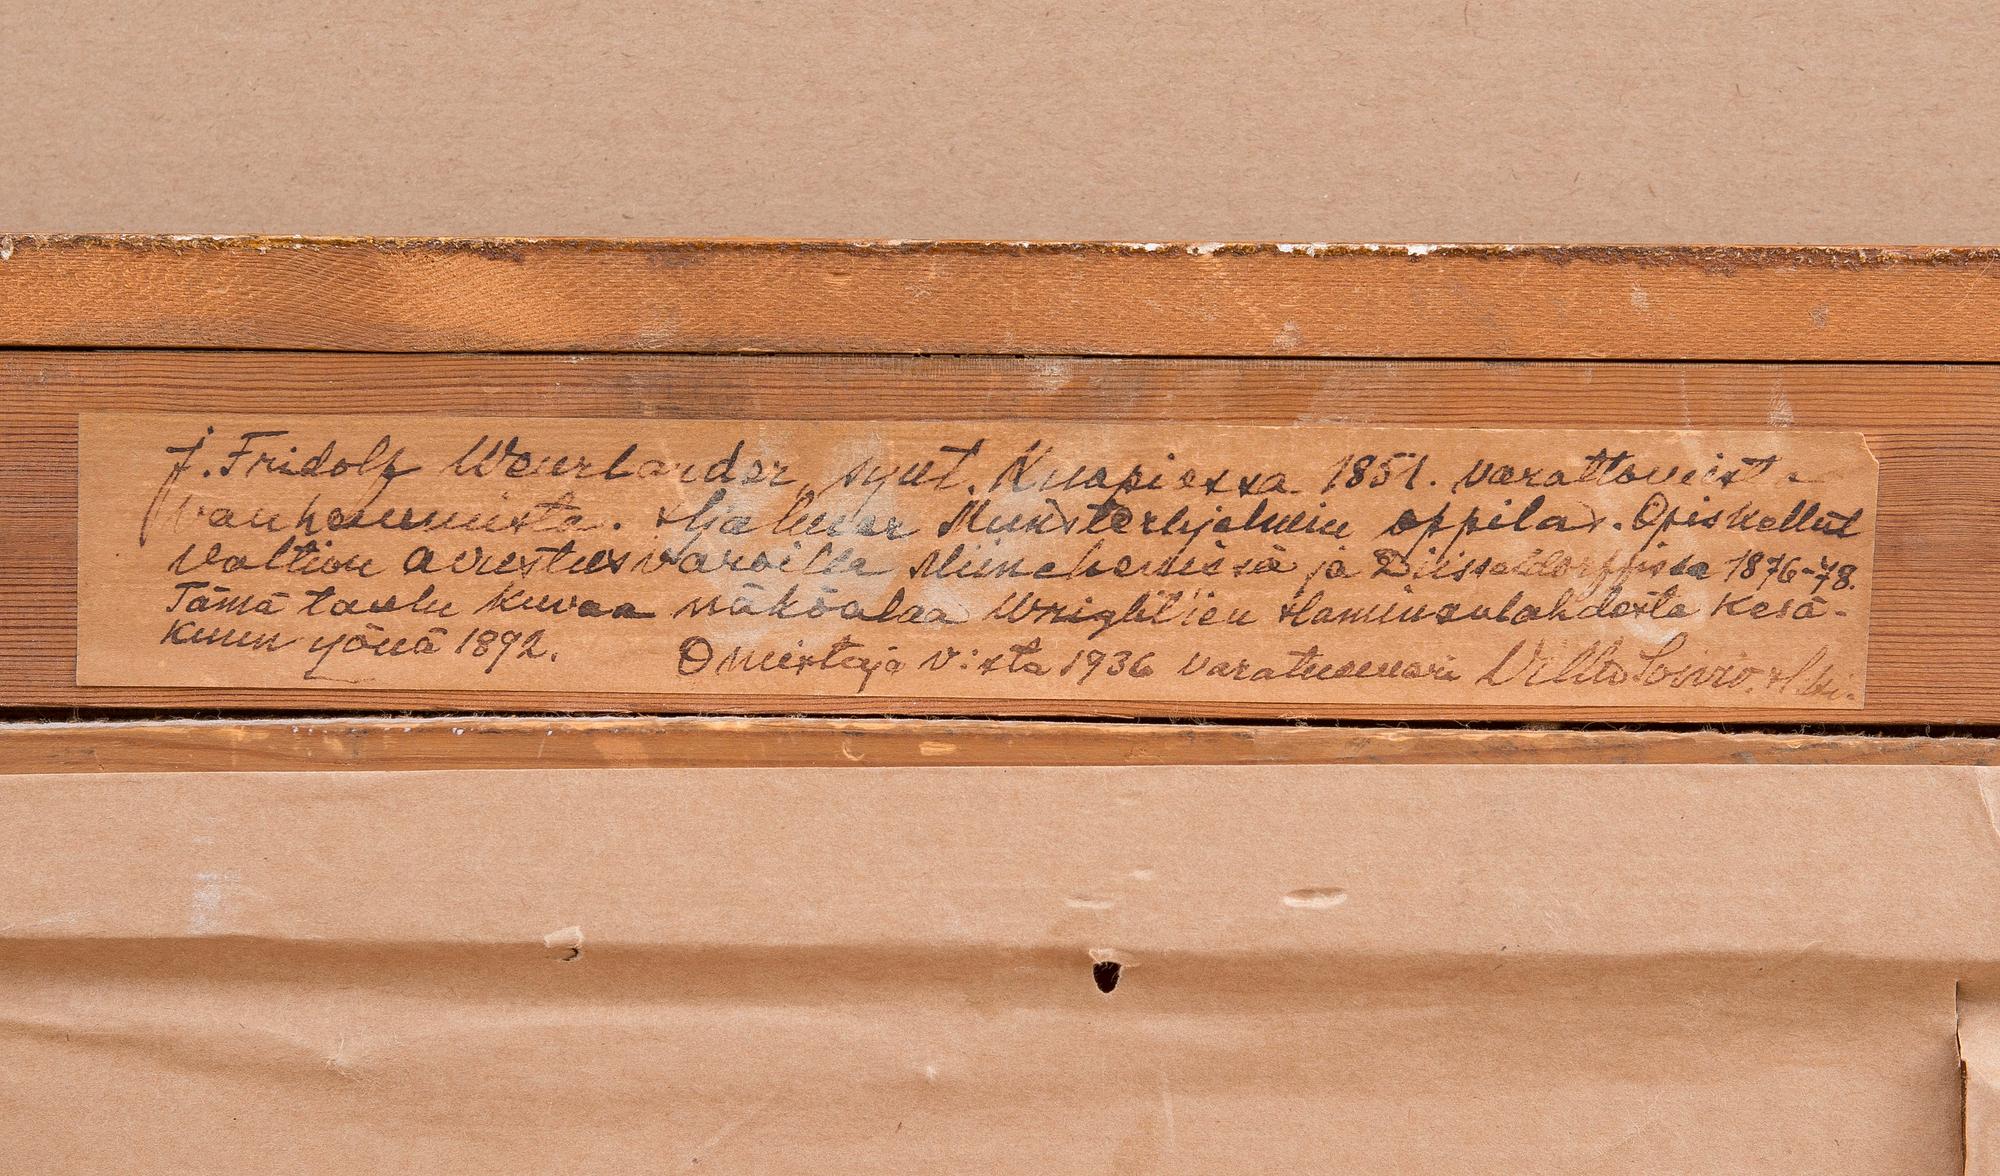 J. Fridolf Weurlander, synt. Kuopiossa 1851. varattomista
vanhemmista. Hjalmar Munsterhjelmin oppilas. Opiskellut
Valtion avustusvaroilla Münchenissä ja Düsseldorffissa 1876-78.
Tämä taulu kuvaa näköalaa Wright'ien Haminanlahdesta Kesä-
kuun yönä 1892. Omistaja v:sta 1936 varatuomari Vilho Soivio. H:ki.